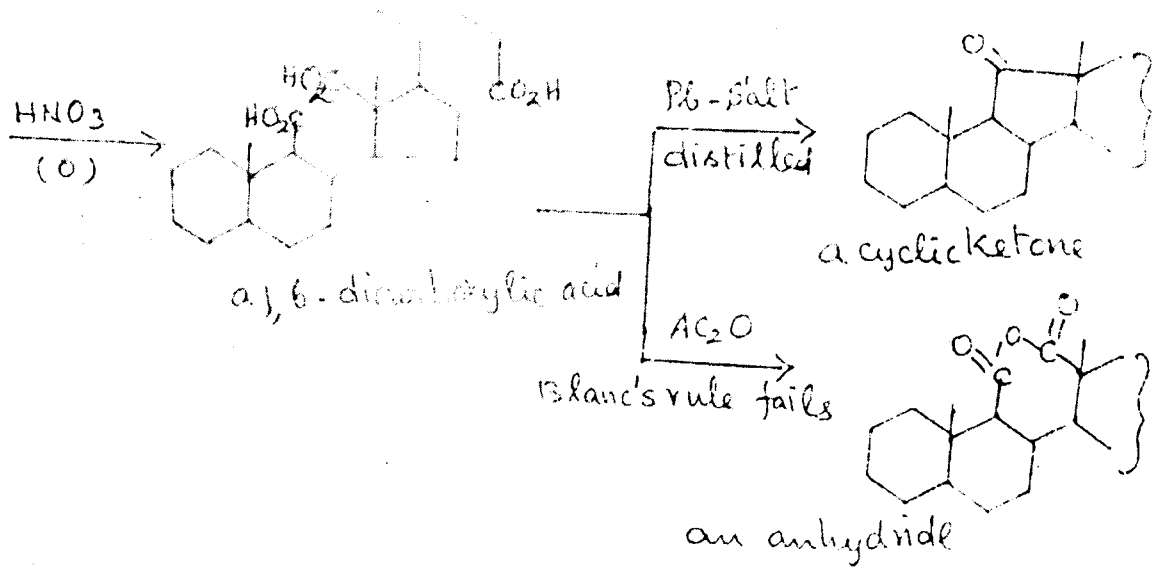 HNO3
(O)
HO2C
HO2C
CO2H
a 1,6-dicarboxylic acid
Pb-Salt
distilled
O
a cyclic ketone
AC2O
Blanc's rule fails
O
C
O
C
O
an anhydride